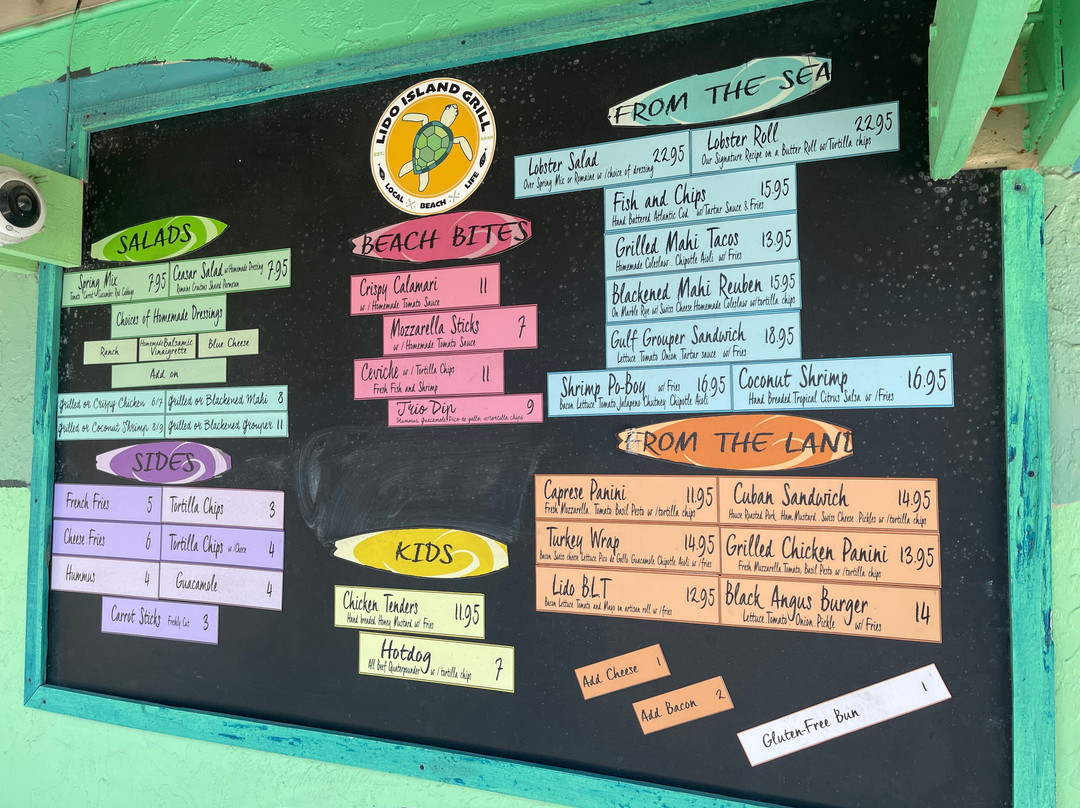 LIDO ISLAND GRILL
LOCAL BEACH LIFE
SALADS
Spring Mix 7.95
Tomato Carrot Cucumber Red Cabbage
Ceasar Salad w/Homemade Dressing 7.95
Romaine Croutons Shaved Parmesan
Choices of Homemade Dressings
Ranch
Homemade Balsamic
Vinaigrette
Blue Cheese
Add on
Grilled or Crispy Chicken 6/7
Grilled or Blackened Mahi 8
Grilled or Coconut Shrimp 8/9
Grilled or Blackened Grouper 11
SIDES
French Fries 5
Tortilla Chips 3
Cheese Fries 6
Tortilla Chips w/Cheese 4
Hummus 4
Guacamole 4
Carrot Sticks Freshly Cut 3
BEACH BITES
Crispy Calamari 11
w/Homemade Tomato Sauce
Mozzarella Sticks 7
w/Homemade Tomato Sauce
Ceviche w/Tortilla Chips 11
Fresh Fish and Shrimp
Trio Dip 9
Hummus Guacamole Pico de gallo w/tortilla chips
KIDS
Chicken Tenders 11.95
Hand breaded Honey Mustard w/Fries
Hotdog 7
All Beef Quaterpounder w/tortilla chips
FROM THE SEA
Lobster Salad 22.95
Over Spring Mix or Romaine w/choice of dressing
Lobster Roll 22.95
Our Signature Recipe on a Butter Roll w/Tortilla chips
Fish and Chips 15.95
Hand Battered Atlantic Cod w/Tartar Sauce & Fries
Grilled Mahi Tacos 13.95
Homemade Coleslaw, Chipotle Aioli w/Fries
Blackened Mahi Reuben 15.95
On Marble Rye w/Swiss Cheese Homemade Coleslaw w/tortilla chips
Gulf Grouper Sandwich 18.95
Lettuce Tomato Onion Tartar sauce w/Fries
Shrimp Po-Boy w/Fries 16.95
Bacon Lettuce Tomato Jalapeno Chutney Chipotle Aioli
Coconut Shrimp 16.95
Hand Breaded Tropical Citrus Salsa w/Fries
FROM THE LAND
Caprese Panini 11.95
Fresh Mozzarella, Tomato, Basil Pesto w/tortilla chips
Cuban Sandwich 14.95
House Roasted Pork, Ham, Mustard, Swiss Cheese, Pickles w/tortilla chips
Turkey Wrap 14.95
Bacon Swiss cheese Lettuce Pico de Gallo Guacamole Chipotle Aioli w/fries
Grilled Chicken Panini 13.95
Fresh Mozzarella, Tomato, Basil Pesto w/tortilla chips
Lido BLT 12.95
Bacon Lettuce Tomato and Mayo on artisan roll w/fries
Black Angus Burger 14
Lettuce, Tomato, Onion, Pickle w/Fries
Add Cheese 1
Add Bacon 2
Gluten-Free Bun 1